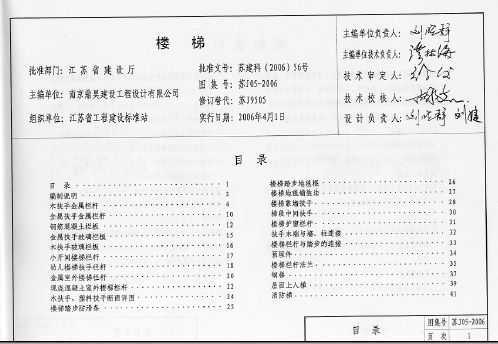 楼 梯
批准部门: 江苏省建设厅
批准文号: 苏建科(2006)56号
主编单位: 南京鼎昊建设工程设计有限公司
图集号: 苏J05-2006
修订替代: 苏J9505
组织单位: 江苏省工程建设标准站
实行日期: 2006年4月1日
主编单位负责人:
主编单位技术负责人:
技术审定人:
技术校核人:
设计负责人:
目 录
目 录 1
编制说明 2
木扶手金属栏杆 4
金属扶手金属栏杆 10
钢筋混凝土栏板 12
金属扶手玻璃栏板 15
木扶手玻璃栏板 16
小开间楼梯栏杆 17
幼儿楼梯扶手栏杆 18
金属室外楼梯栏杆
现浇混凝土室外楼梯栏杆 22
木扶手、塑料扶手断面详图 24
楼梯踏步防滑条 25
楼梯踏步地毯棍 26
27
楼梯靠墙扶手 28
梯段中间扶手 30
楼梯护窗栏杆 31
扶手末端与墙、柱连接 32
楼梯栏杆与踏步的连接 33
预埋件 34
楼梯栏杆法兰 35
钢梯 37
屋面上人梯 39
消防梯 41
目 录
图集号 苏J05-2006
页次 1